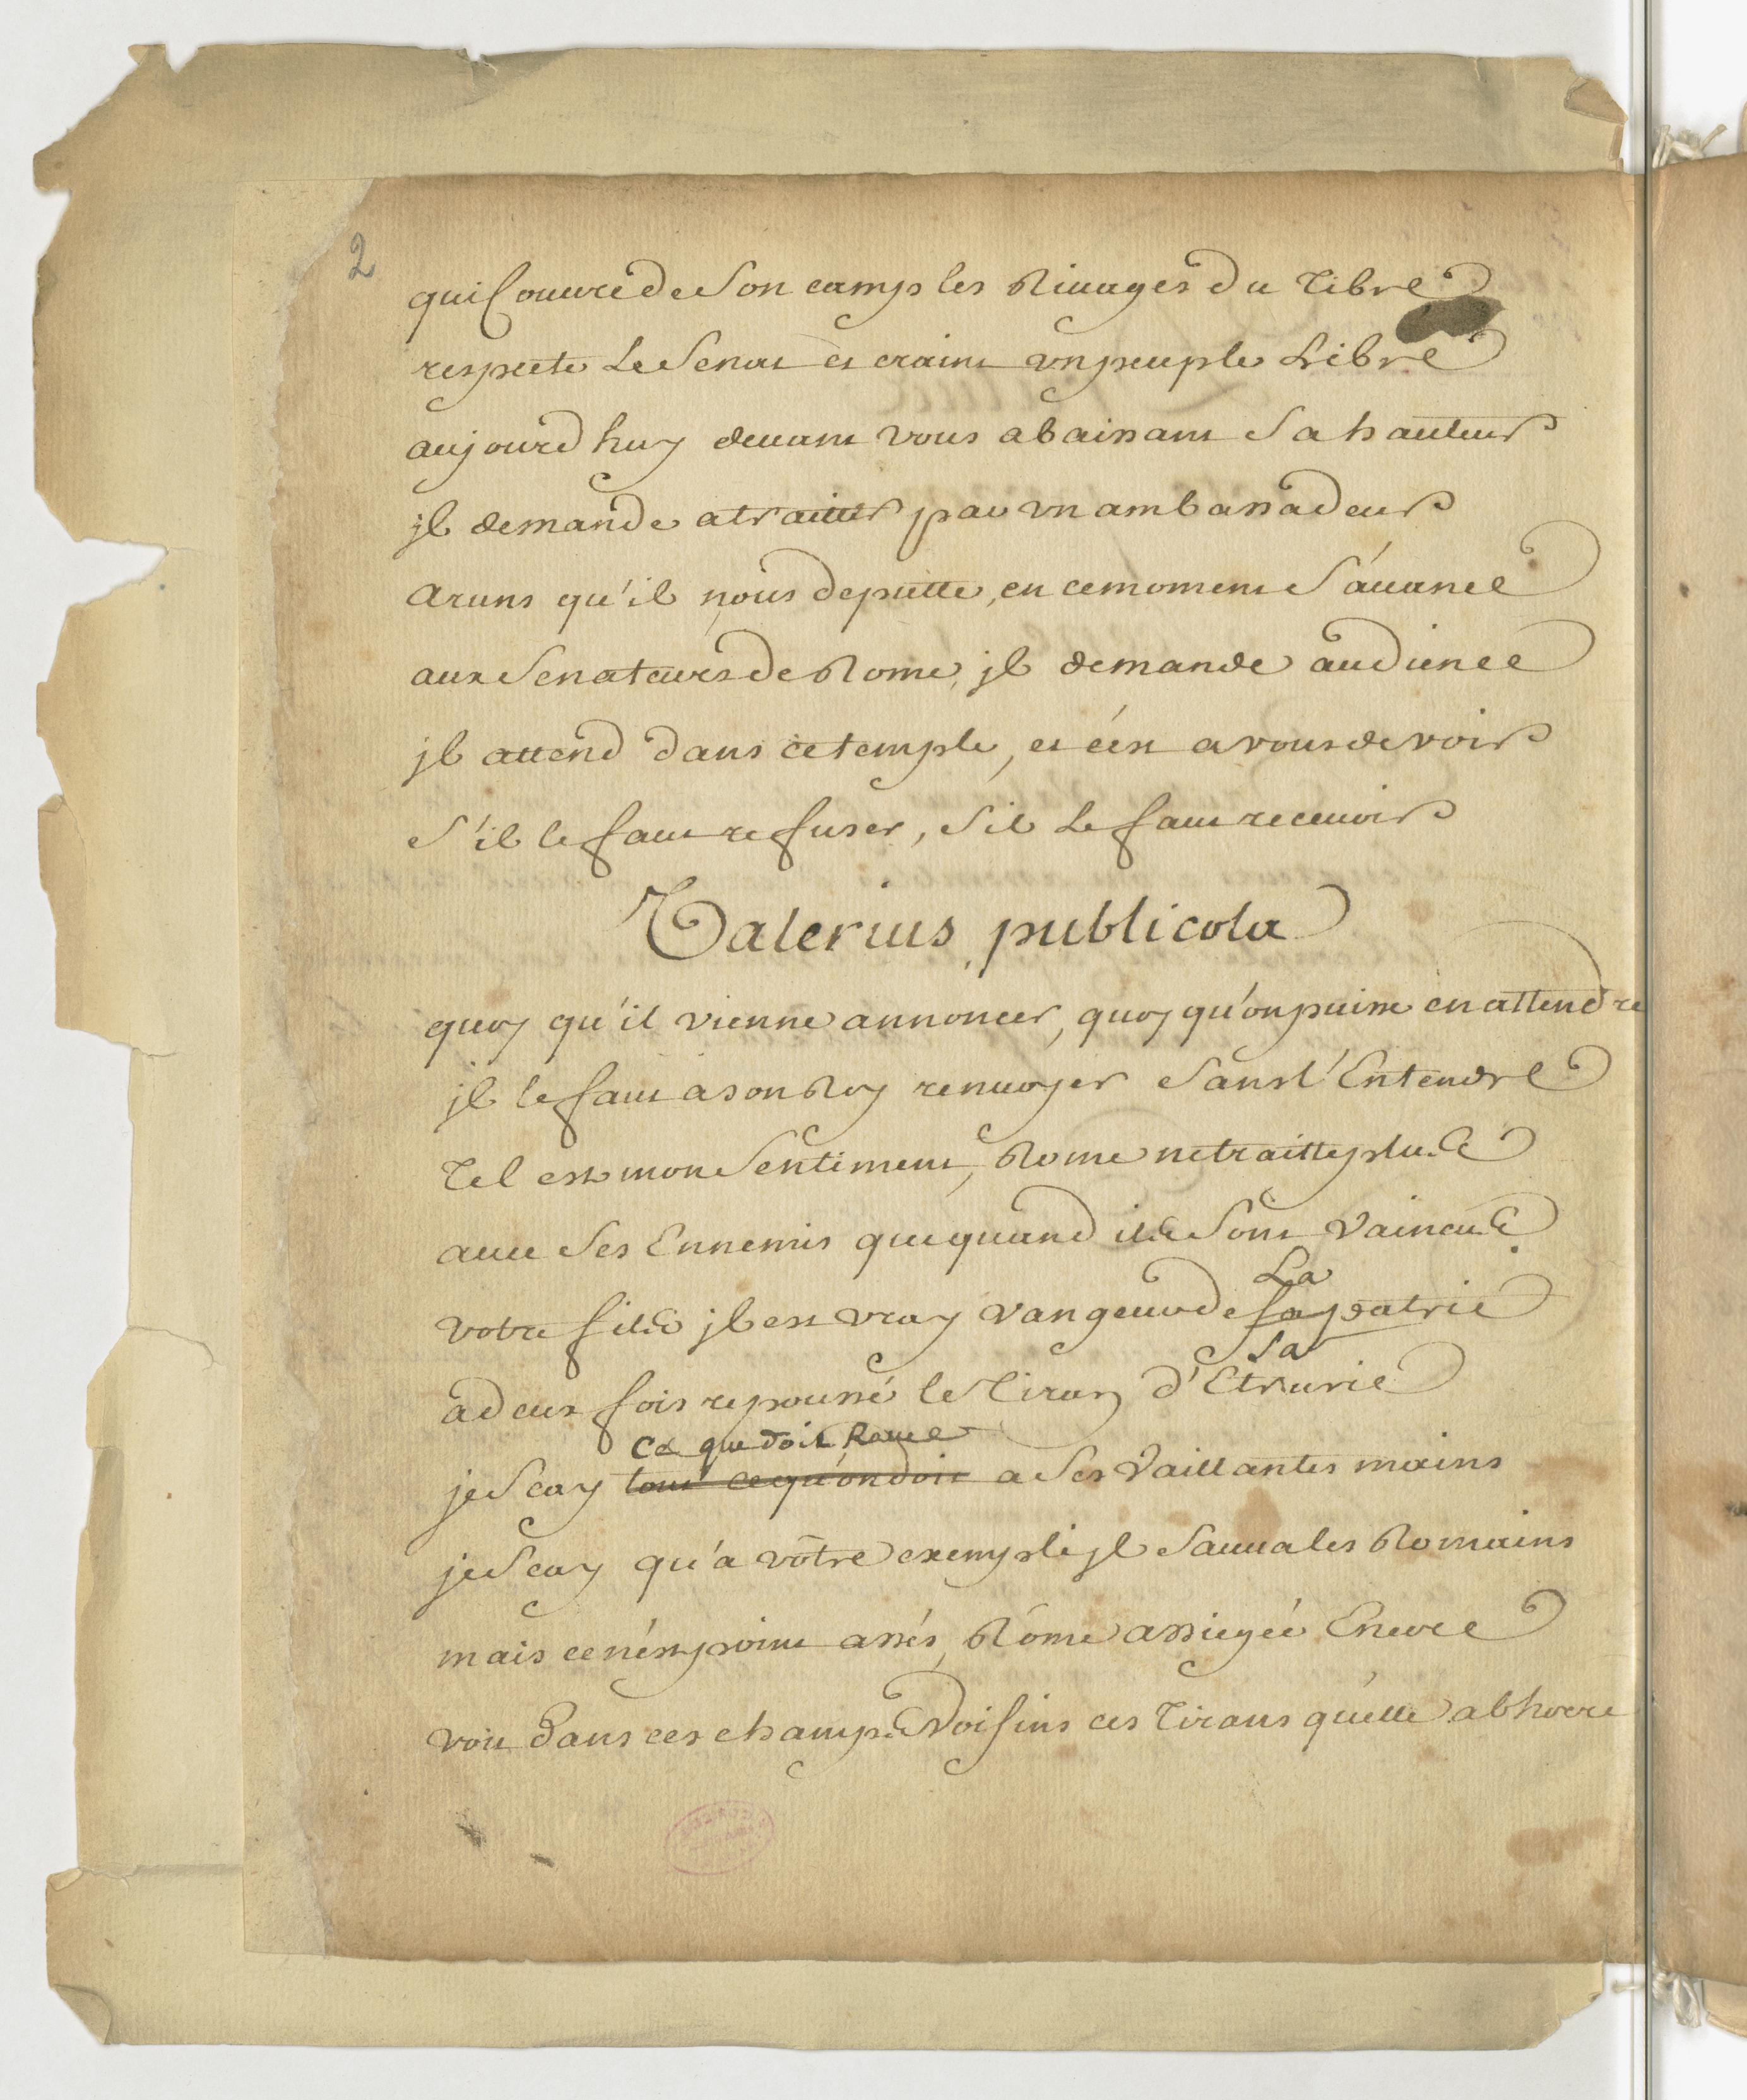 2
qui Couvre de Son camp les Rivages du Tibre
respecte Le Senat et craint vn peuple Libre
aujourd huy deuant vous abaissant Sa hauteur
jl demande a traitter par vn ambassadeur
Aruns qu'il nous deputte, en ce moment S'auance
aux Senateurs de Rome, jl demande audience
jl attend dans ce temple, et c'est a vous de voir
S'il le faut refuser, S'il Le faut receuoir
Valerius publicola
quoy qu'il vienne annoncer, quoy qu'on puisse en attendre
jl le faut a son Roy renuoyer Sans l'Entendre
Tel est mon Sentiment, Rome ne traitte plus
auec Ses Ennemis que quand ils Sont Vaincus.
La
votre fils jl est vray vangeur de sa patrie
Sa
a deux fois repoussé le Tiran d'Etrurie
Ce que doit Rome
je Scay tout ce qu'on doit a Ses Vaillantes mains
je Scay qu'a vôtre exemple jl Sauua les Romains
mais ce n'ést point assés, Rome assiegée Encore
voit dans ces champs Voisins ces Tirans qu'elle abhorre